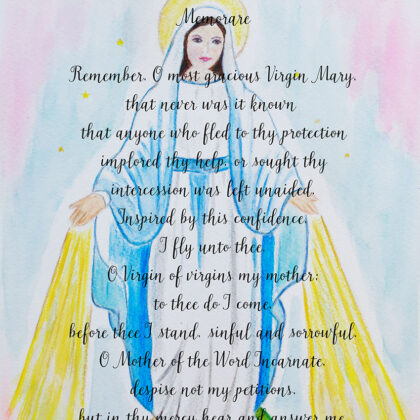 Memorare
Remember, O most gracious Virgin Mary,
that never was it known
that anyone who fled to thy protection
implored thy help, or sought thy
intercession was left unaided.
Inspired by this confidence,
I fly unto thee,
O Virgin of virgins my mother;
to thee do I come,
before thee I stand, sinful and sorrowful.
O Mother of the Word Incarnate,
despise not my petitions,
but in thy mercy hear and answer me.